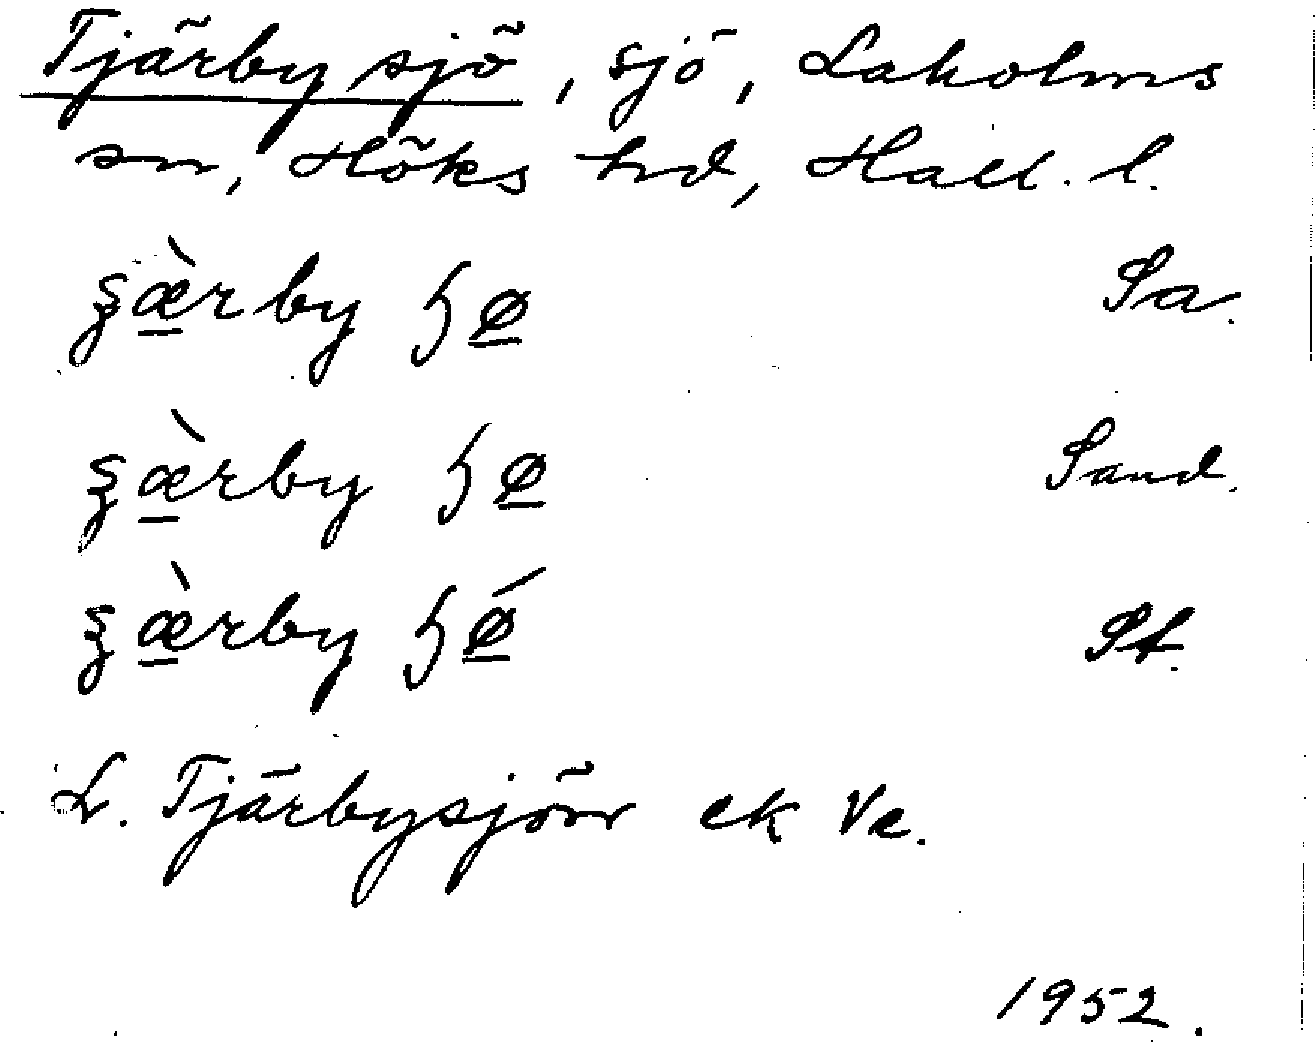 Tjärby sjö, sjö, Laholms
sn, Höks hd, Hall. l.
ȿæ̠̀rby ɧø̠ Sa.
ȿæ̠̀rby ɧø̠ Sand.
ȿæ̠̀rby ɧǿ̠ St.
L. Tjärbysjön ek Ve.
1952.